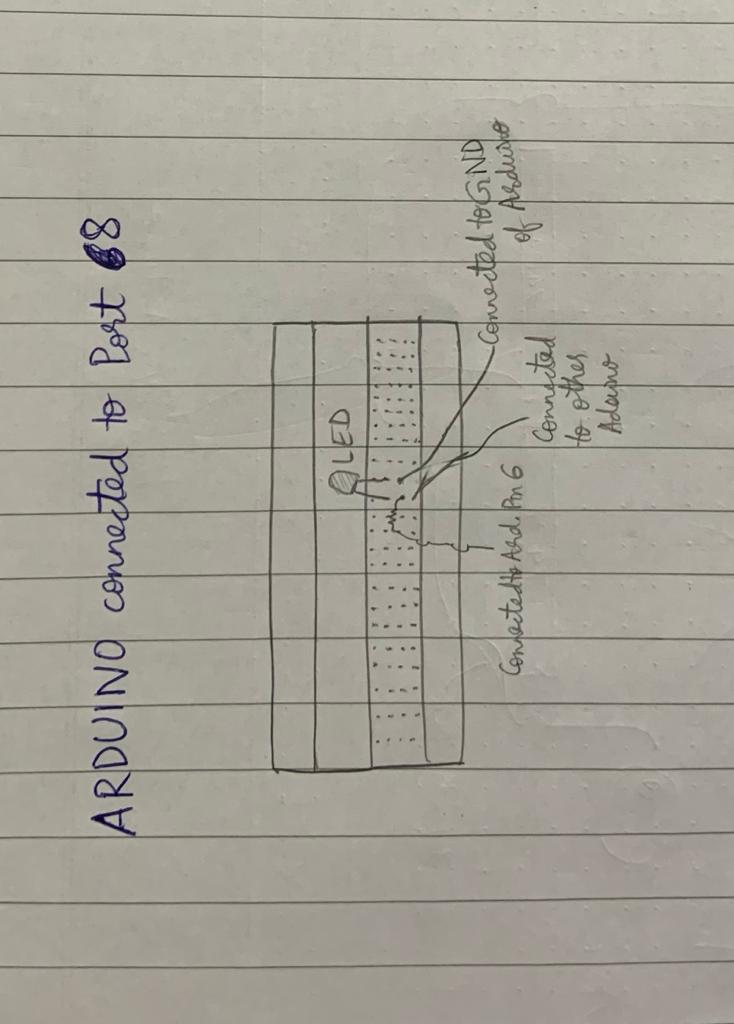 ARDUINO connected to Port 8
LED
Connected to GND
of Arduino
Connected
to other
Connected to Ard. Pin 6